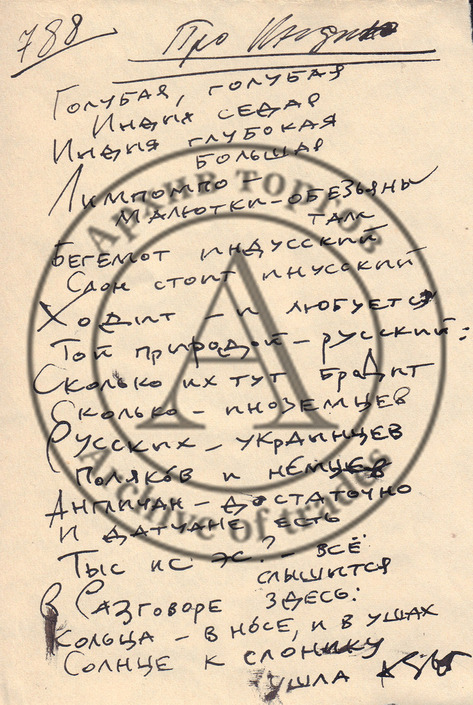 788 Про Индию
Голубая, голубая
Индия седая
Индия глубокая
Большая
Лимпомпо –
Малютки-обезьяны
там
Бегемот индусский
Слон стоит инусский
Ходит – и любуется
Той природой – русский:
Сколько их тут бродит
Сколько – иноземцев
Русских – украинцев
Поляков и немцев
Англичан – достаточно
И датчане есть
Тыс ис э? – всё
слышится
В разговоре здесь:
Кольца – в носе, и в ушах
Солнце к слонику
ушла
Архив торгов
A
Archive of trades